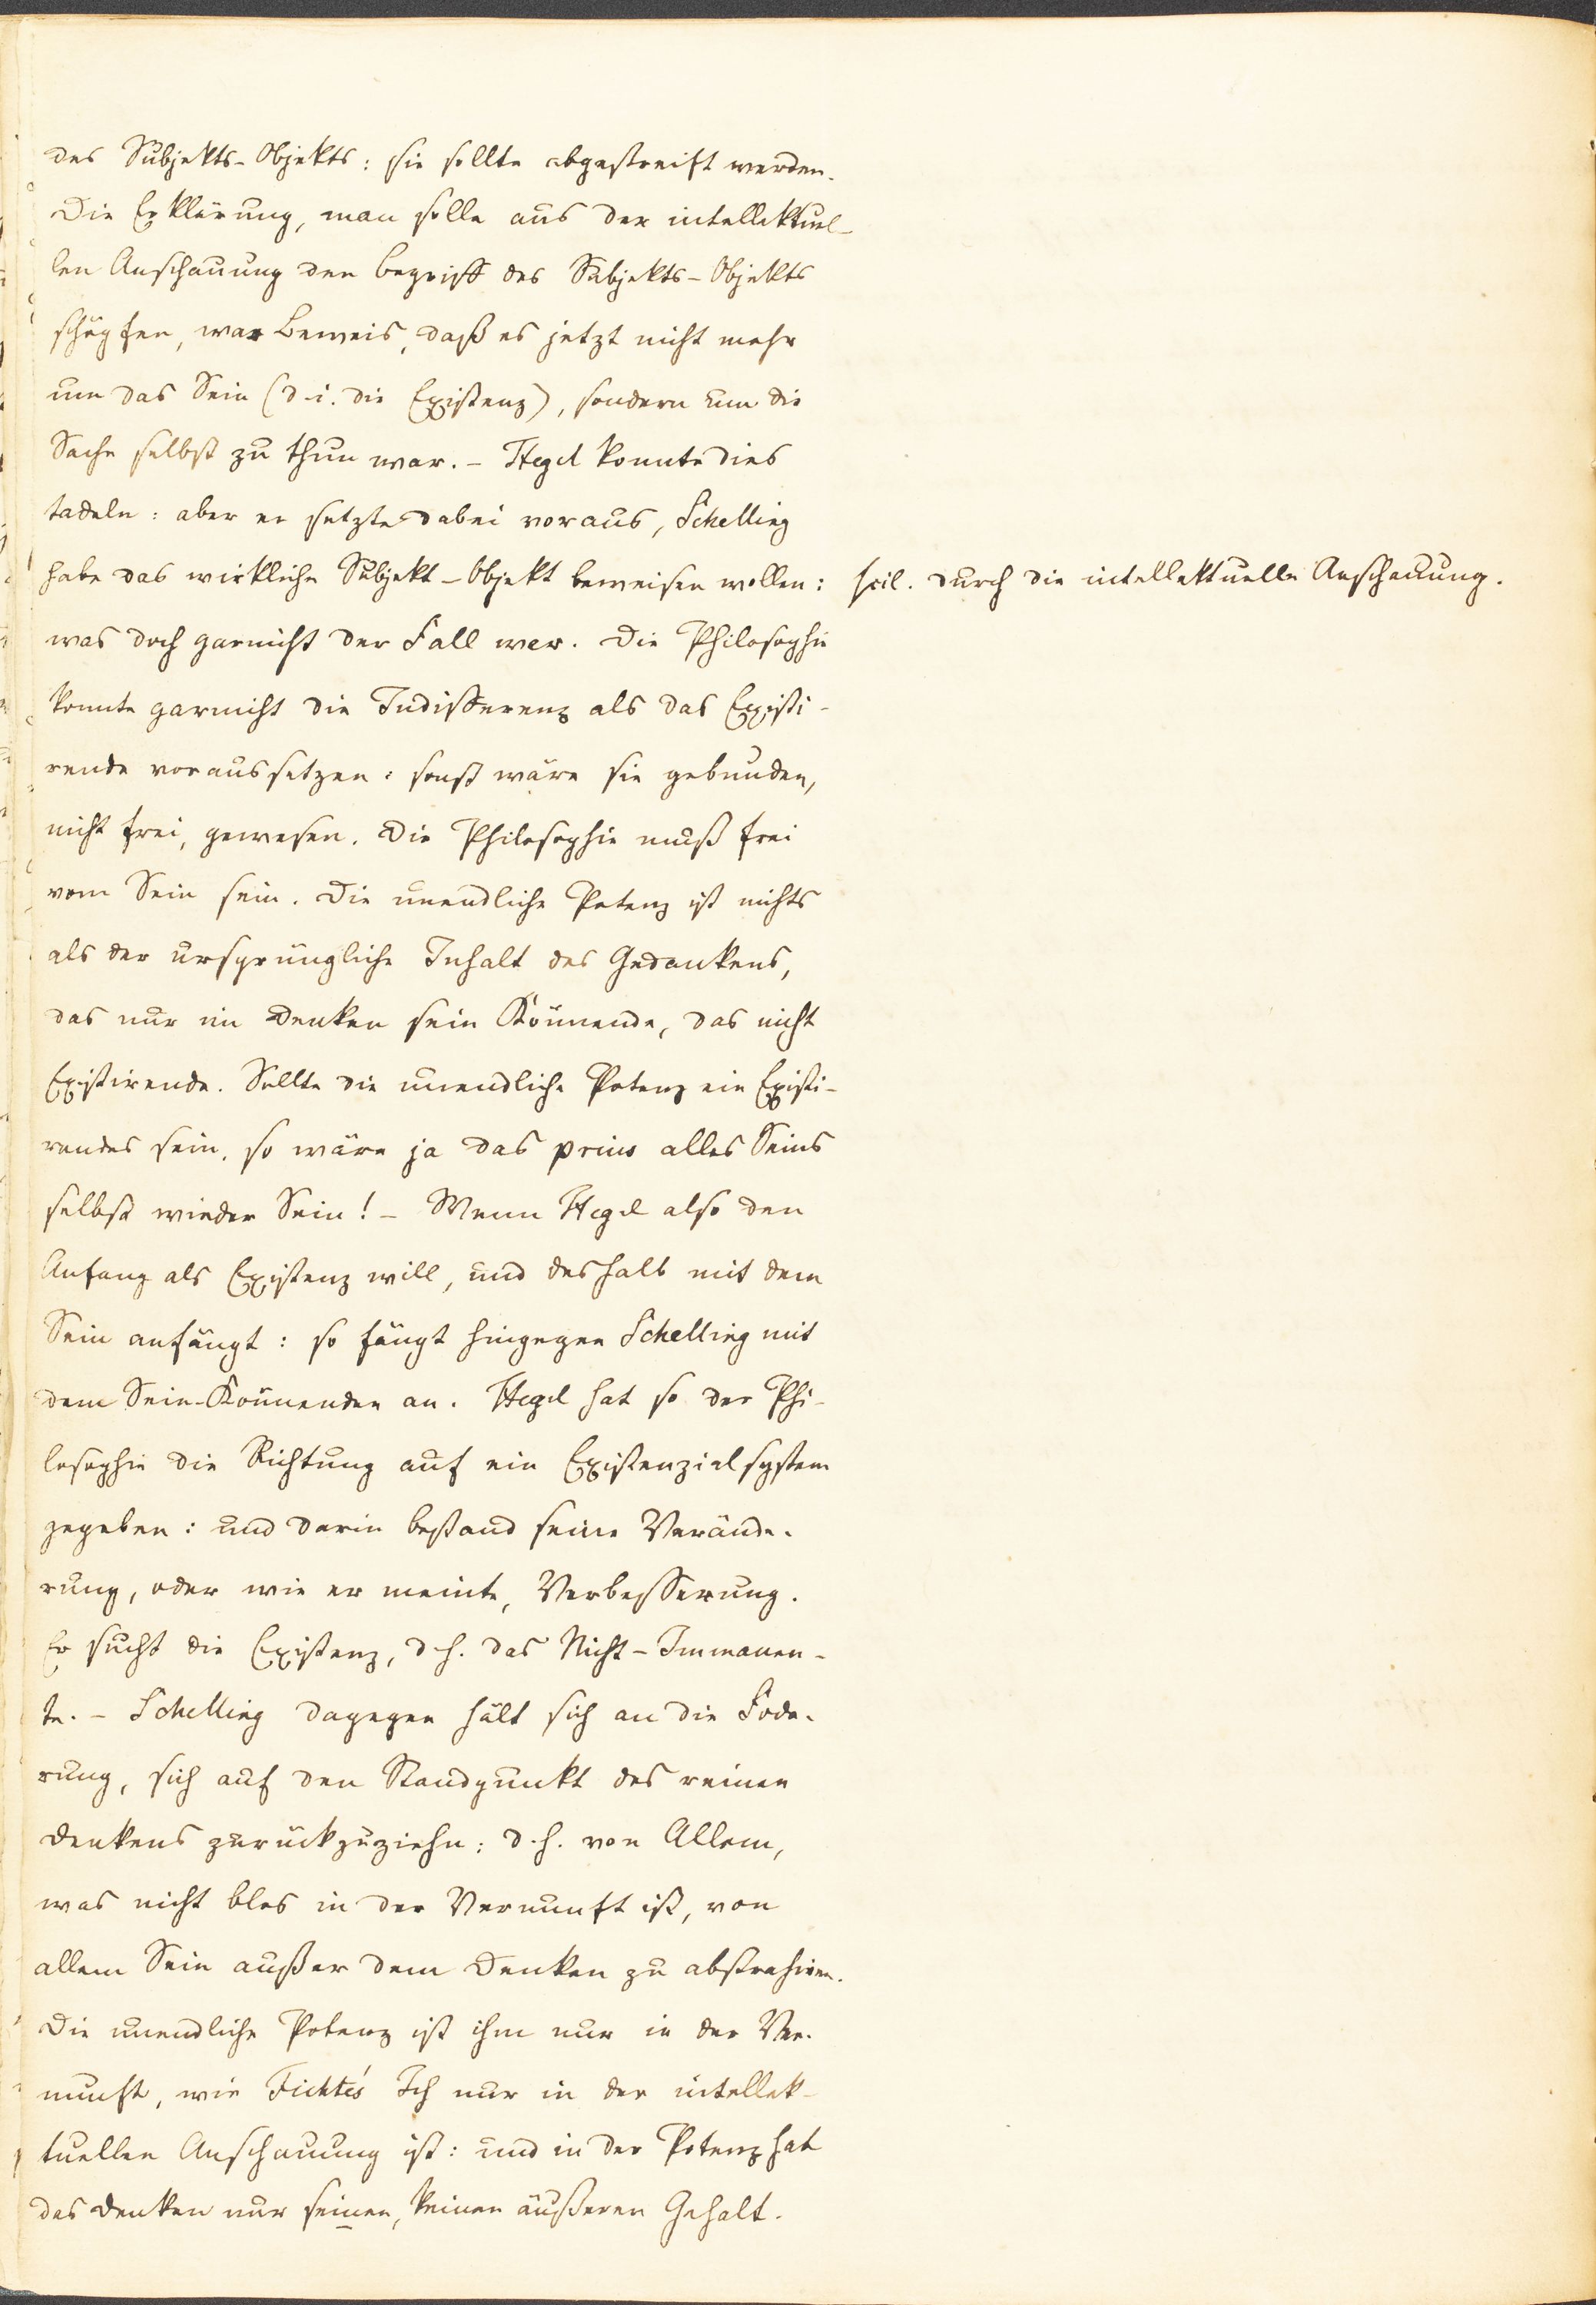 des Subjekts-Objekts: sie sollte abgestreift werden.
Die Erklärung, man solle aus der intellektuel-
len Anschauung den Begriff des Subjekts-Objekts
schöpfen, war Beweis, daß es jetzt nicht mehr
um das Sein (d.i. die Existenz), sondern um die
Sache selbst zu thun war. – Hegel konnte dies
tadeln: aber er setzte dabei voraus, Schelling
habe das wirkliche Subjekt-Objekt beweisen wollen: scil. durch die intellektuelle Anschauung.
was doch garnicht der Fall war. Die Philosophie
konnte garnicht die Indifferenz als das Existi-
rende voraussetzen: sonst wäre sie gebunden,
nicht frei, gewesen. Die Philosophie muß frei
vom Sein sein. Die unendliche Potenz ist nichts
als der ursprüngliche Inhalt des Gedankens,
das nur im Denken sein Könnende, das nicht
Existirende. Sollte die unendliche Potenz ein Existi-
rendes sein, so wäre ja das prius alles Seins
selbst wieder Sein! – Wenn Hegel also den
Anfang als Existenz will, und deshalb mit dem
Sein anfängt: so fängt hingegen Schelling mit
dem Sein-Könnenden an. Hegel hat so der Phi-
losophie die Richtung auf ein Existenzialsystem
gegeben: und darin bestand seine Verände-
rung, oder wie er meinte, Verbesserung.
Er sucht die Existenz, d.h. das Nicht-Immanen-
te. – Schelling dagegen hält sich an die Fode-
rung, sich auf den Standpunkt des reinen
Denkens zurückzuziehn: d.h. von Allem,
was nicht blos in der Vernunft ist, von
allem Sein außer dem Denken zu abstrahiren.
Die unendliche Potenz ist ihm nur in der Ver-
nunft, wie Fichte's Ich nur in der intellek-
tuellen Anschauung ist: und in der Potenz hat
das Denken nur seinen, keinen äußeren Gehalt.